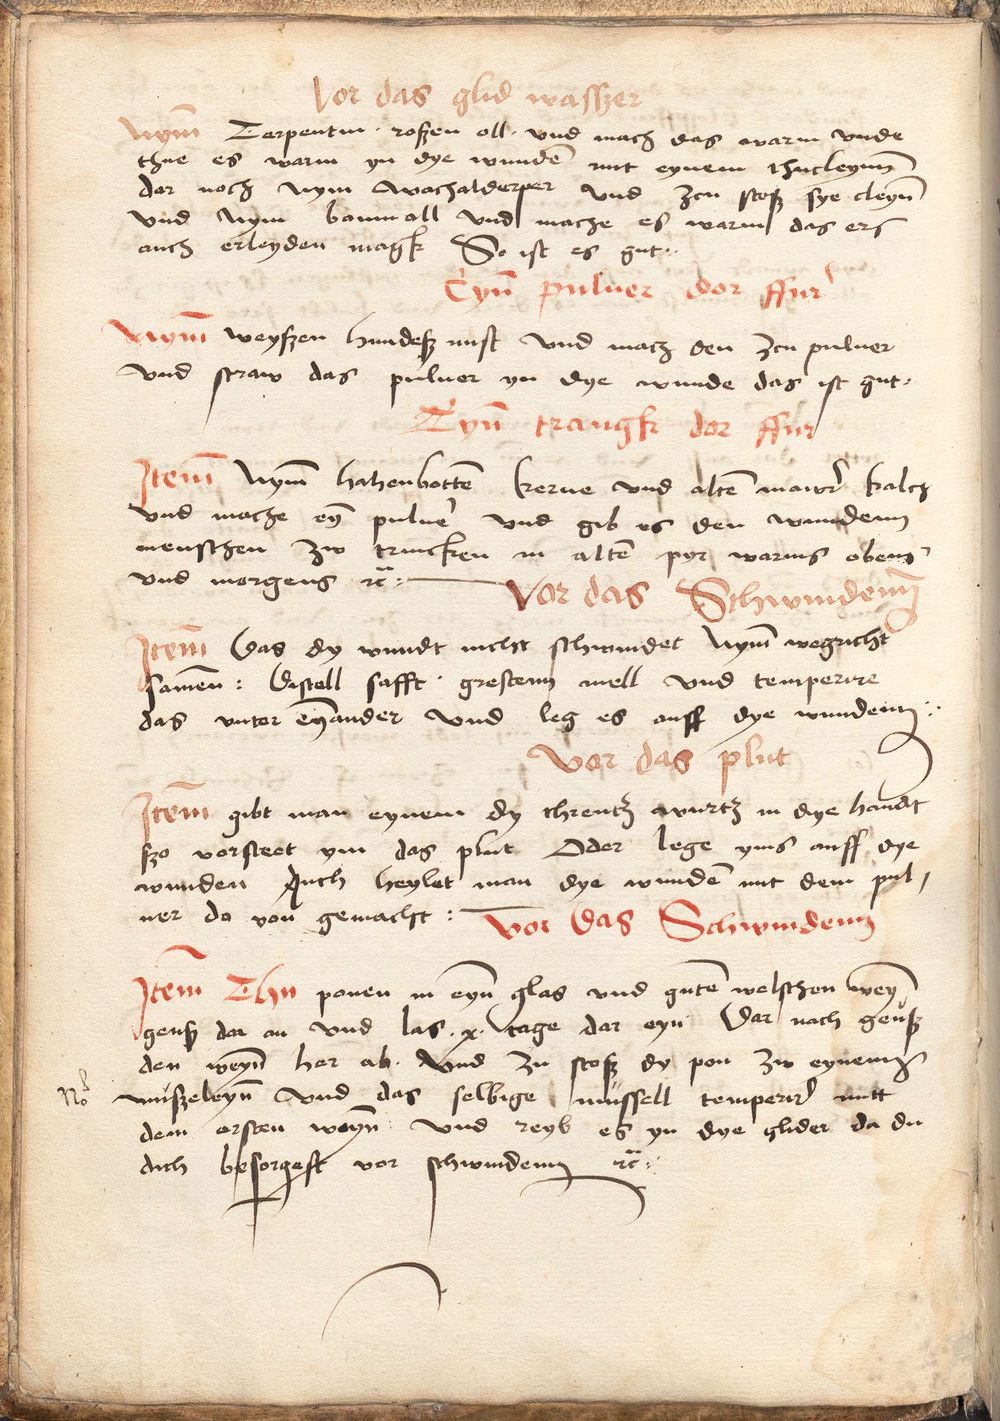 Vor das glid wasszer
Nym̄ Terpentin · roszen oll · vnd mach das warm vnde
thue es warm yn dye wundē mit eynem thucleynn̄
dar noch Nym wachalderper vnd zcu stosz sye cleyn̄
vnd Nym bawm oll vnd mache es warm das ers
auch erleyden magk So ist es gut ·:·
Eyn̄ puluer dor ffur
Nym̄ weyszen hundesz mist vnd mach den zcu puluer
vnd straw das puluer yn dye wunde das ist gut ·
Eyn̄ trangk dor ffur
Item̄ Nym̄ hahenbottē kerne vnd altē mawr kalch
vnd mache eȳ puluer vnd gib es den wundenn
menschen zw trincken in altē pyr warms obens
vnd morgens rc̄ :
Vor das Schwindenn̄
Item̄ Das dy wundt nicht schwindet Nym̄ wegricht
samen̄ : Distell safft · gersten mell vnd temperire
das vnter eynander vnd leg es auff dye wundenn :·
Vor das plut
Item̄ gibt man eynem dy threntz wurtz in dye handt
szo vorsteet ym das plut Oder lege yms auff dye
wunden Auch heylet man dye wundē mit dem pul,
uer do von gemacht :
Vor das Schwindenn
Item̄ Thu ponen in eyn̄ glas vnd gutē welschen weyn̄
geusz dar an vnd las · x · tage dar eyn Dar nach geusz
den weyn̄ her ab · Vnd zu stosz dy pon zw eynem
No muszeleyn̄ vnd das selbige mussell temperir mitt
dem ersten weyn̄ vnd reyb es yn dye glider da du
dich besorgest vor schwindenn rc̄ :